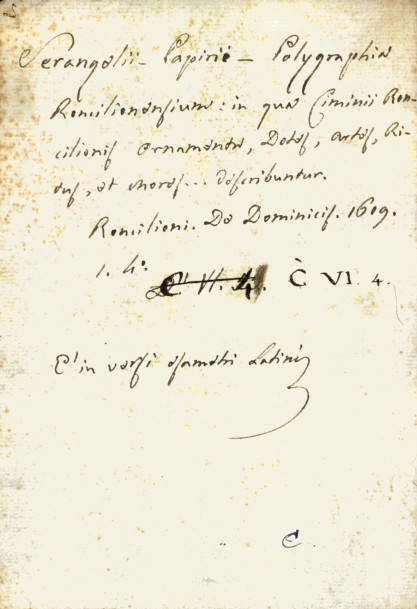 Serangelii - Papirie - Polygraphia
Roncilionensium: in qua Ciminii Ron-
cilionis ornamenta, Dotes, artes, Ri-
tus, et mores... describuntur.
Roncilioni. De Dominicis. 1609.
1. 4°.
C VI. 4. C̀ VI. 4.
E' in versi esametri Latini
C.